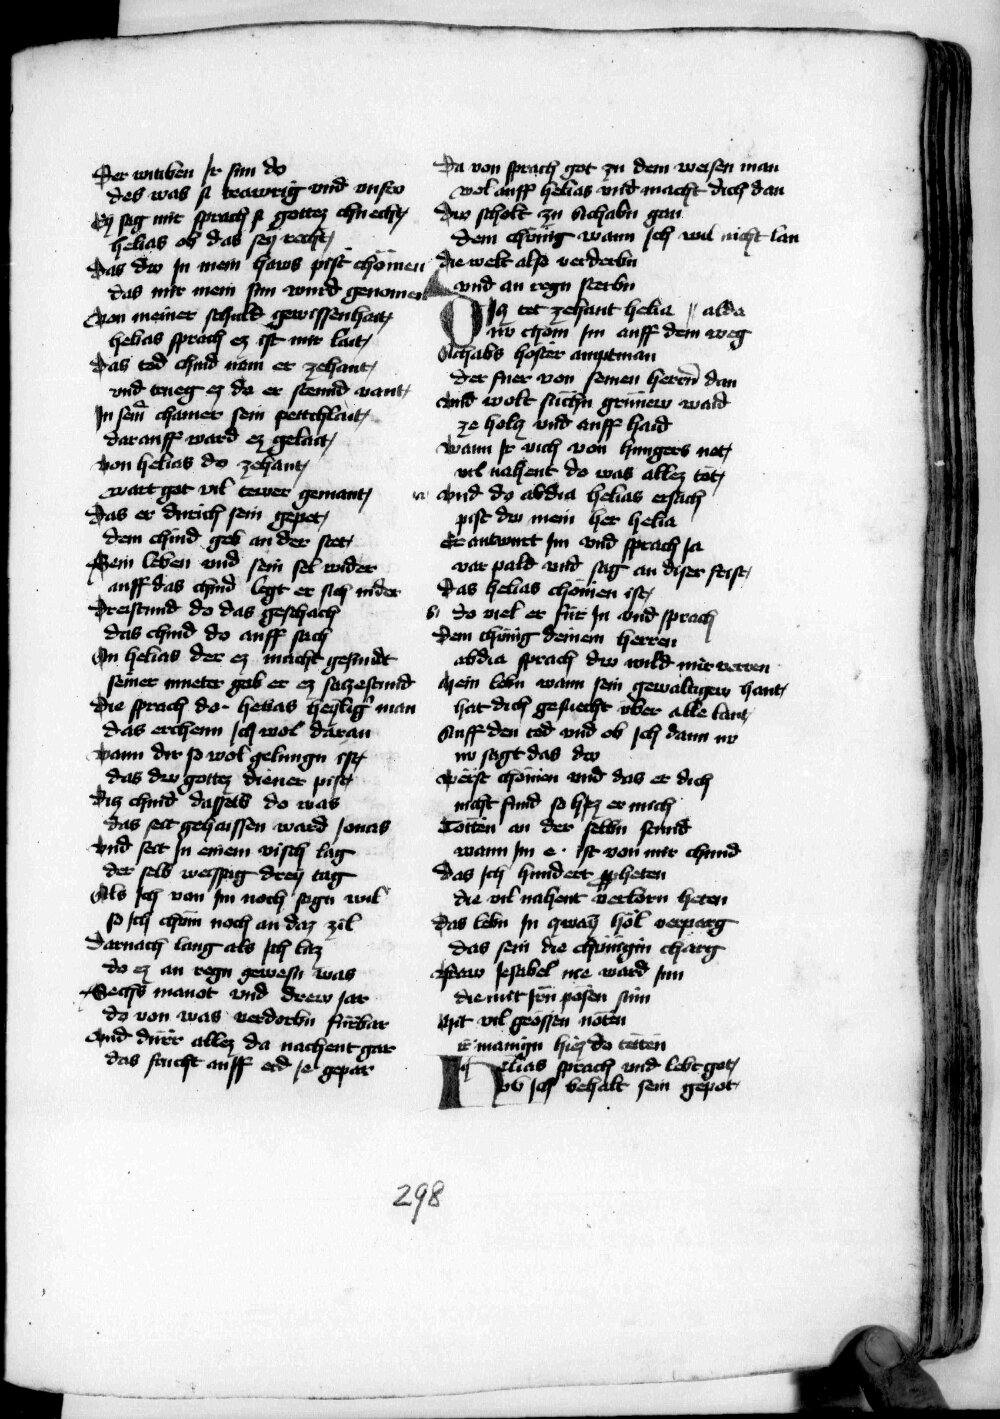 Der wittiben Jr sun do
des was si trawrig vnd vnfro
Ey sag mir sprach si gottez chnecht
helias ob das sey recht
Das dw Jn mein haws pist chömen
das mir mein sun wurd genomen
Von meiner schuld gewissenhait
helias sprach ez ist mir lait
Das tod chind nam er zehant
vnd trueg ez do er stennd vant
Jn sein chamer sein pettchlait
darauff ward ez gelait
Von helias do zehant
wart got vil tewer gemant
Das er durich sein gepet
dem chind geb an der stet
Sein leben vnd sein sel wider
auff das chind legt er sich nider
Dreistund do das geschach
das chind do auff sach
An helias der ez macht gesundt
seiner mueter gab er ez sazestund
Die sprach do · helias heylig man
das erchenn Jch wol daran
Wann dir so wol gelungn ist
das dw gottez diener pist
Diz chind dasselb do was
das seit gehaissen ward Jonas
Vnd seit Jn einem visch lag
der selb weissag drey tag
Als Jch von Jm noch sagn wil
so Jch chom noch an daz zil
Darnach lang als Jch laz
do ez an regn gewesn was
Sechs manot vnd drew Jar
do von was verdorbn fürbar
Vnd dürr allez da nachent gar
das frucht auff erd Je gepar
Da von sprach got zu dem weisen man
wol auff helias vnd mach dich dan
Dw scholt zu Achabn gan
dem chünig wann Jch wil nicht lan
Die welt also verderbn
vnd an regn sterbn
Diz tet zehant helia // alda
nw chom Jm auff dem weg
Achabs höster amptman
der fuer von seinen herrn dan
Vnd wolt suchn grünew waid
ze holz vnd auff haid
Wann Jr vich von hungers not
vil nahent do was allez tot
Vnd do abdia helias ersach
pist dw mein her helia
Er antwurt Jm vnd sprach Ja
var pald vnd sag an diser frist
Das helias chömen ist
do viel er für Jn vnd sprach
Dem chünig deinem herren
abdia sprach dw wild mir verren
Mein lebn wann sein gewaltigew hant
hat dich gesuecht vber alle lant
Auff den tod vnd ob Jch dann nw
nw sagt das dw
Werst chömen vnd das er dich
nicht fund so hiez er mich
Totten an der selbn stund
wann Jm e · ist von mir chund
Das Jch hundert pheten
die vil nahent verlorn heten
Das lebn Jn zwayn höl verparg
das sein die chünigin charg
Fraw Jesabel nie ward Jnn
die mit Jrn posen sinn
Mit vil grossen nöten
ir manign hiez do töten
Helias sprach vnd lebt got
vo Jch behalt sein gepot
298